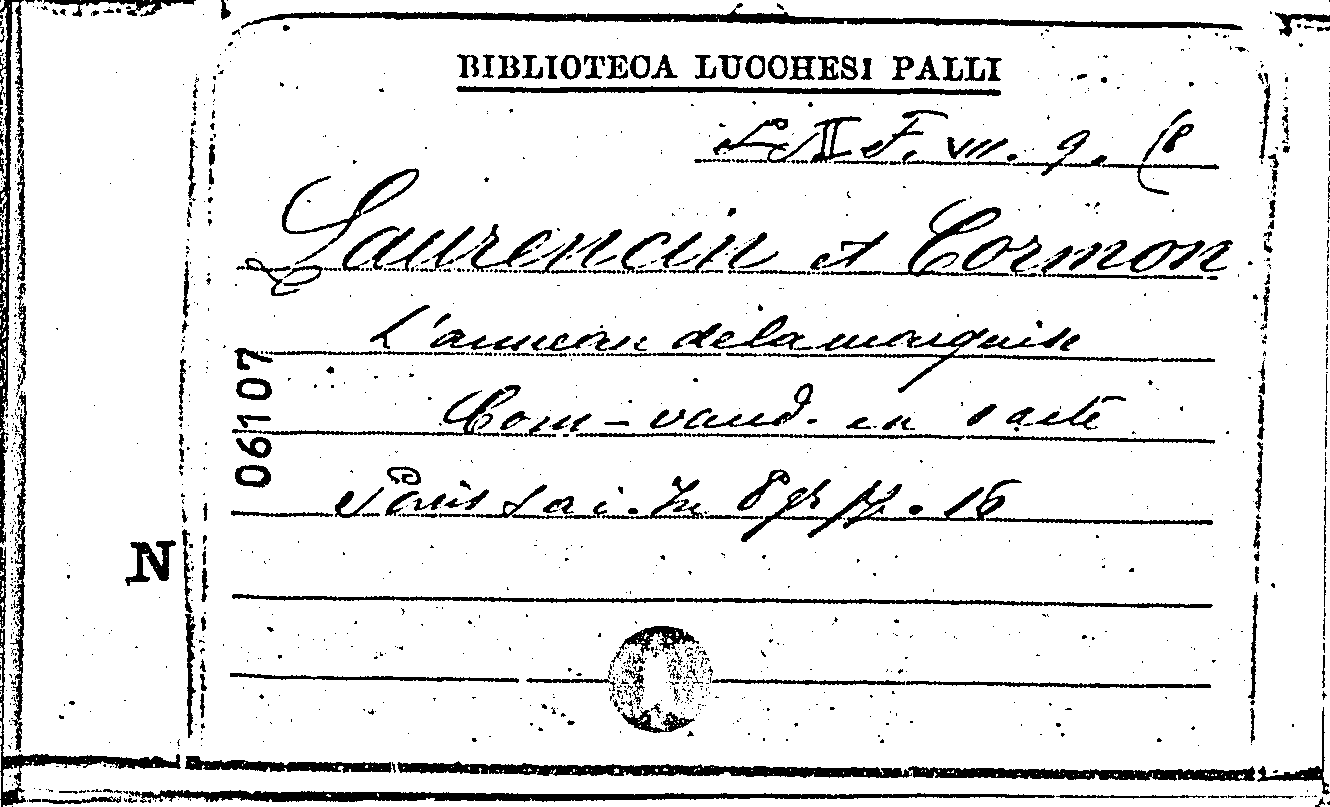 BIBLIOTECA LUCCHESI PALLI
L II F. VII. 9. (8
Laurencin et Cormon
L'anneau de la marquise
Com-vaud. en 1 acte
Paris s a i. In 8 gr pp. 16
06107
N